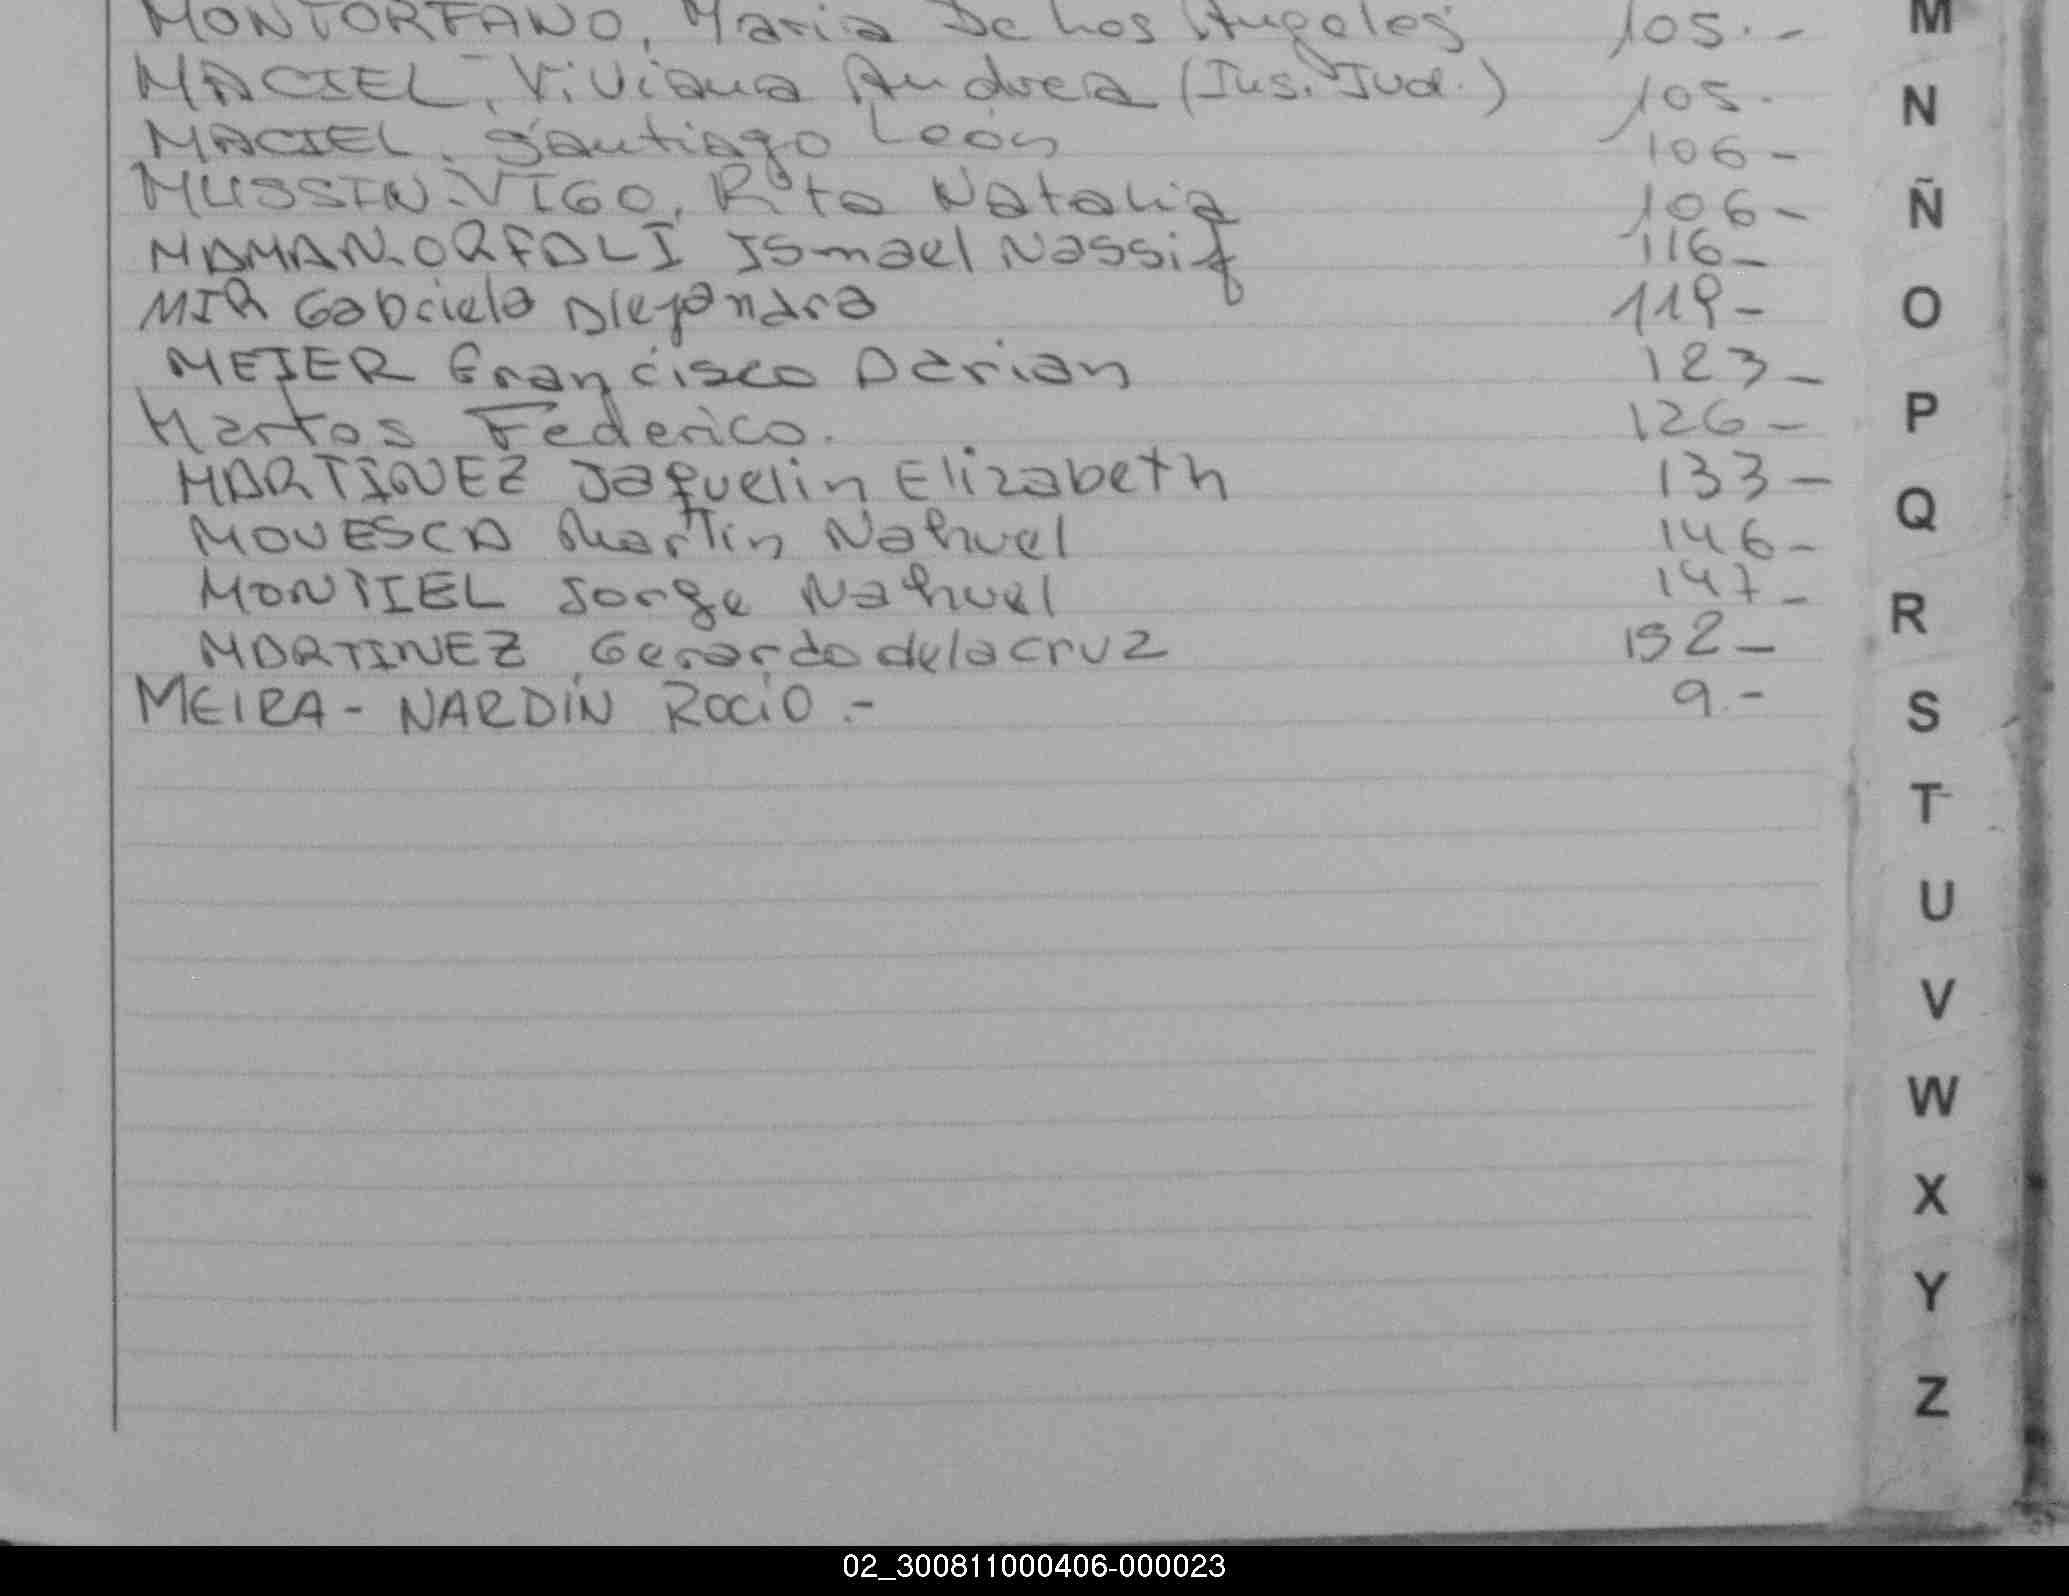 MONTORFANO, Maria De Los Angeles 105.-
MACIEL, Viviana Andrea (Ins. Jud.) 105.
MACIEL, Santiago León 106-
MUSSIN-VIGO, Rita Natalia 106-
MAMAN-ORFALI Ismael Nassif 116-
MIR Gabriela Alejandra 119-
MEIER Francisco Darian 123-
Martos Federico. 126-
MARTINEZ Jaquelin Elizabeth 133-
MOVESCA Martin Nahuel 146-
MONTIEL Jorge Nahuel 147-
MARTINEZ Gerardo de la cruz 152-
MEIRA - NARDÍN ROCIO .- 9.-
M
N
Ñ
O
P
Q
R
S
T
U
V
W
X
Y
Z
02_300811000406-000023